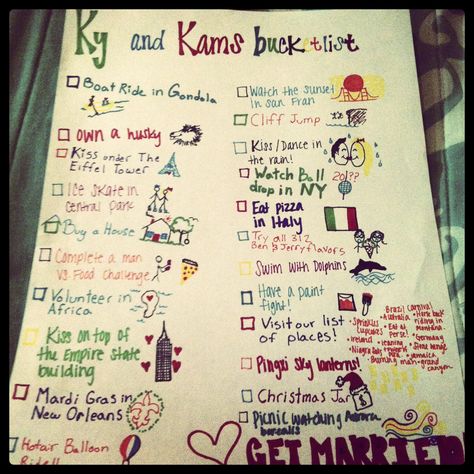 Ky and Kams bucketlist
Boat Ride in Gondola
own a husky
Kiss under The
Eiffel Tower
Ice skate in
central park
Buy a House
Complete a man
VS Food Challenge
Volunteer in
Africa
Kiss on top of
the Empire state
building
Mardi Gras in
New Orleans
Hotair Balloon
Ride!!
Watch the sunset
in san Fran
Cliff Jump
Kiss/Dance in
the rain!
Watch Ball 20!??
drop in NY
Eat pizza
in Italy
Try all 312
Ben & Jerry flavors
Swim With Dolphins
Have a paint
fight!
Visit our list
of places!
Brazil Carnival
Australia
Eat at
Perse!
Sprinkles
Cupcakes
Ireland
Niagra Falls
Burning man
Horse back
riding in
montana
Germany
Stone henge
Jamaica
grand
canyon
Pingxi sky lanterns!
Christmas Jar
Picnic watching Aurora
borealis
GET MARRIED